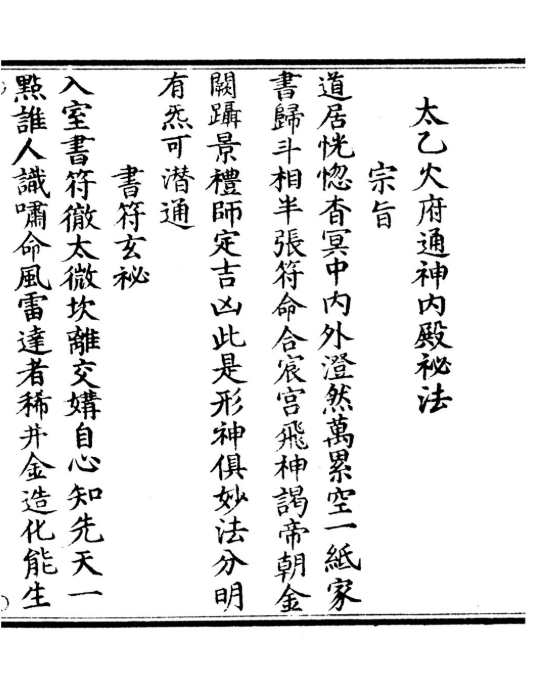 太乙火府通神內殿祕法
宗旨
道居恍惚杳冥中內外澄然萬累空一紙家
書歸斗相半張符命合宸宮飛神謁帝朝金
闕躡景禮師定吉凶此是形神俱妙法分明
有炁可潜通
書符玄祕
入室書符徹太微坎離交媾自心知先天一
點誰人識嘯命風雷達者稀井金造化能生